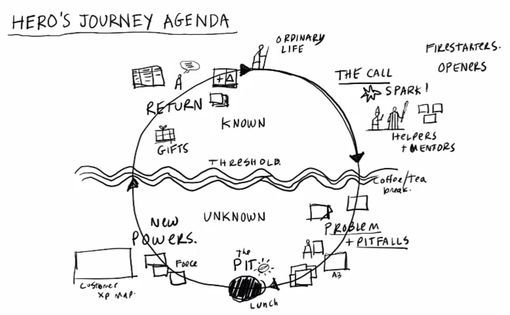 HERO'S JOURNEY AGENDA
ORDINARY
LIFE
FIRESTARTERS.
OPENERS
THE CALL
SPARK!
HELPERS
+ MENTORS
+ Δ
RETURN
KNOWN
GIFTS
THRESHOLD.
Coffee/Tea
break.
UNKNOWN
NEW
POWERS.
PROBLEM
+ PITFALLS
The
PIT
A3
Lunch
Customer
XP MAP.